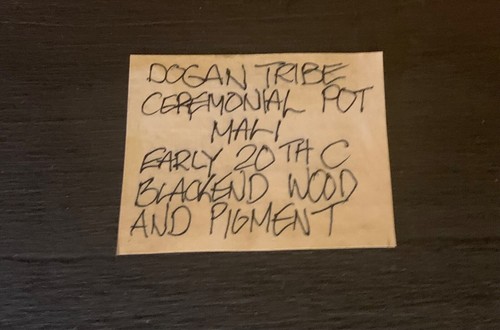 DOGAN TRIBE
CEREMONIAL POT
MALI
EARLY 20TH C
BLACKEND WOOD
AND PIGMENT